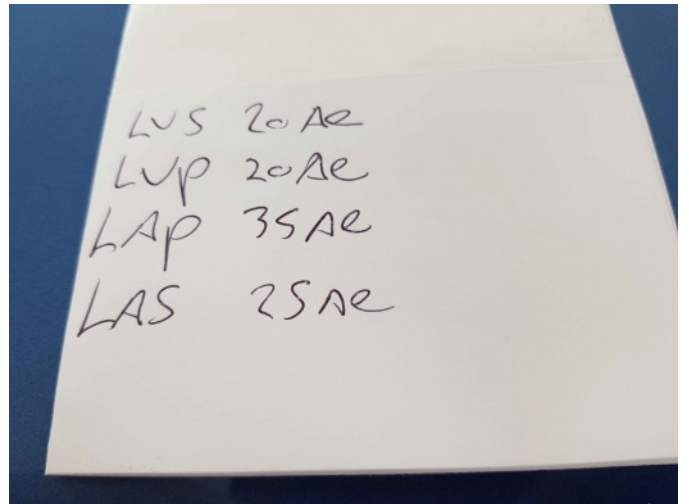 LVS 20Ae
LVp 20Ae
LAp 35Ae
LAS 25Ae